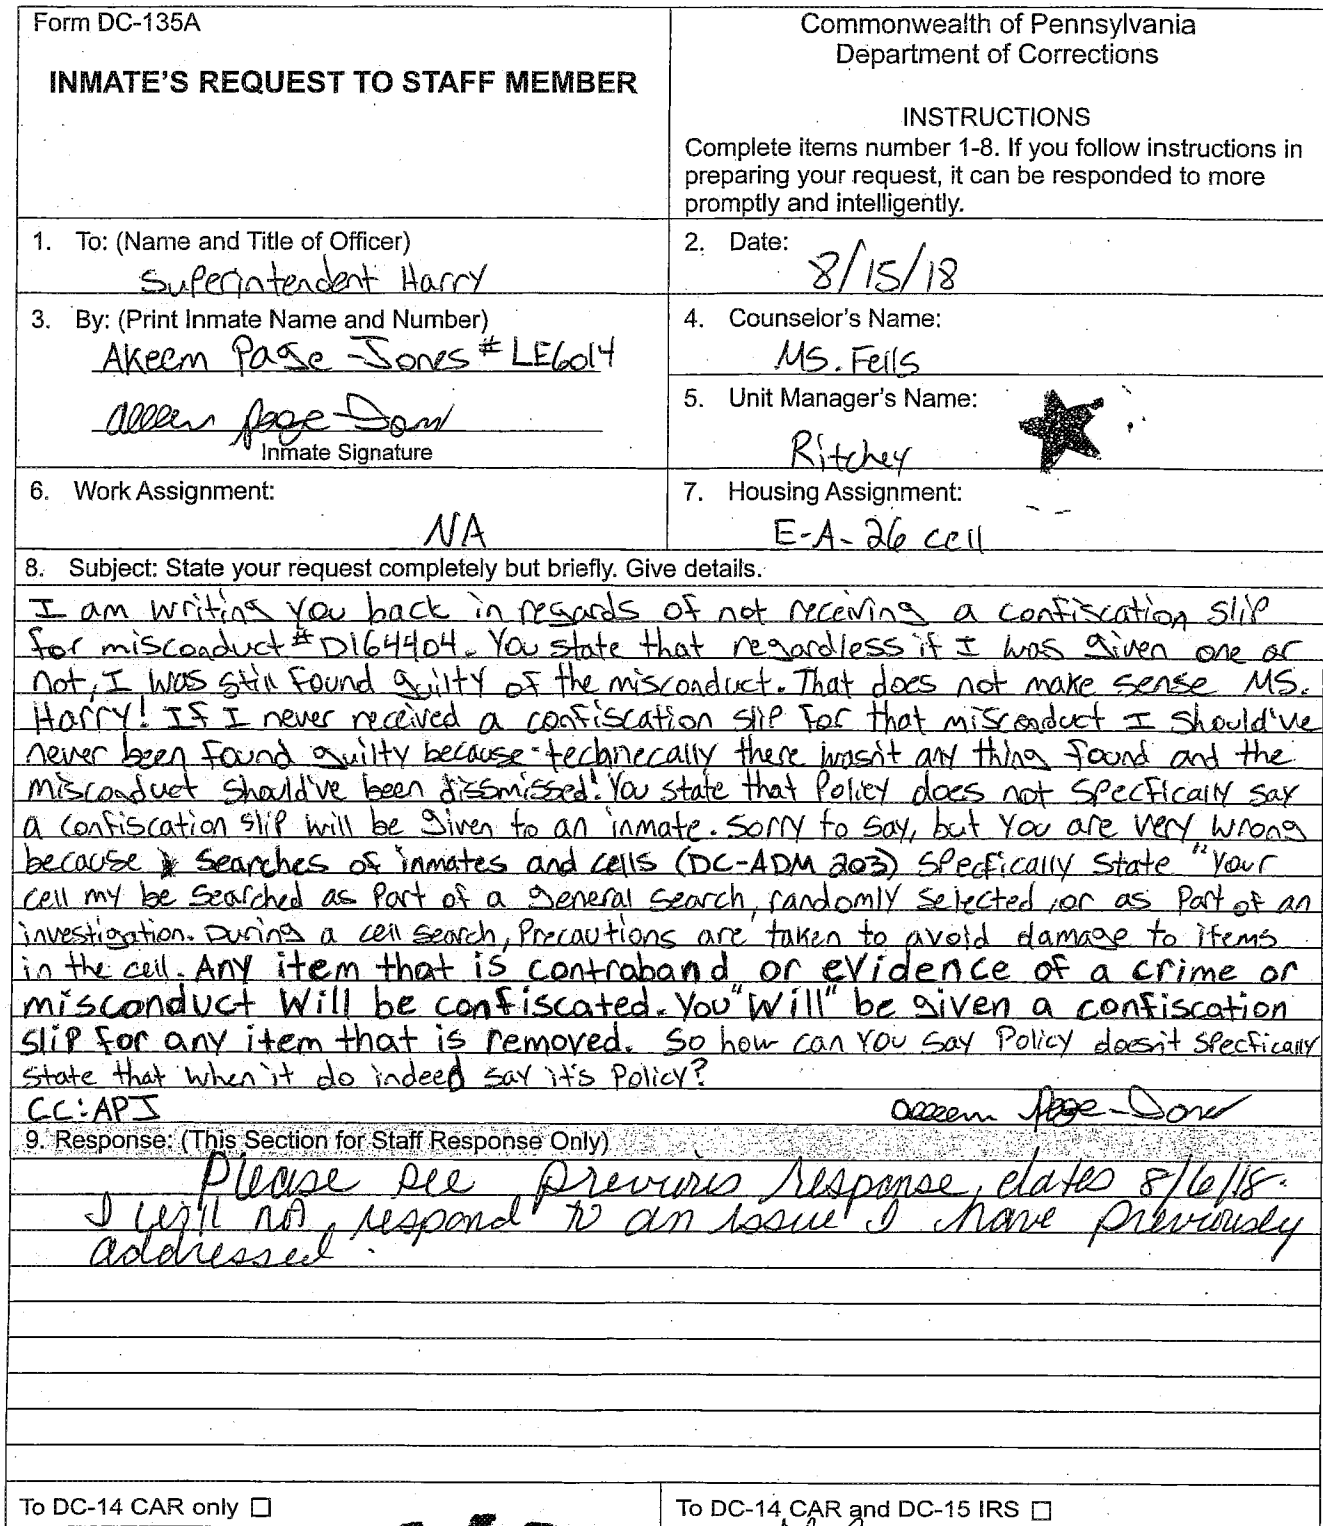 Form DC-135A
INMATE'S REQUEST TO STAFF MEMBER
Commonwealth of Pennsylvania
Department of Corrections
INSTRUCTIONS
Complete items number 1-8. If you follow instructions in
preparing your request, it can be responded to more
promptly and intelligently.
1. To: (Name and Title of Officer)
Superintendent Harry
2. Date:
8/15/18
3. By: (Print Inmate Name and Number)
Akeem Page-Jones # LE6014
Akeem Page-Jones
Inmate Signature
4. Counselor's Name:
MS. Fells
5. Unit Manager's Name:
Ritchey
6. Work Assignment:
NA
7. Housing Assignment:
E-A-26 cell
8. Subject: State your request completely but briefly. Give details.
I am writing you back in regards of not receiving a confiscation slip
for misconduct # D164404. You state that regardless if I was given one or
not, I was still found guilty of the misconduct. That does not make sense MS.
Harry! If I never received a confiscation slip for that misconduct I should've
never been found guilty because technecally there wasn't any thing found and the
misconduct should've been dissmissed! You state that Policy does not specfically say
a confiscation slip will be given to an inmate. Sorry to say, but you are very wrong
because searches of inmates and cells (DC-ADM 203) specfically state "your
cell my be searched as part of a general search, randomly selected, or as part of an
investigation. During a cell search, Precautions are taken to avoid damage to items
in the cell. Any item that is contraband or evidence of a crime or
misconduct Will be confiscated. You "Will" be given a confiscation
slip for any item that is removed. So how can you say Policy doesn't specfically
state that when it do indeed say it's Policy?
CC: APJ
Akeem Page-Jones
9. Response: (This Section for Staff Response Only)
Please see previous response, dates 8/6/18.
I will not respond to an issue I have previously
addressed.
To DC-14 CAR only ☐
To DC-14 CAR and DC-15 IRS ☐